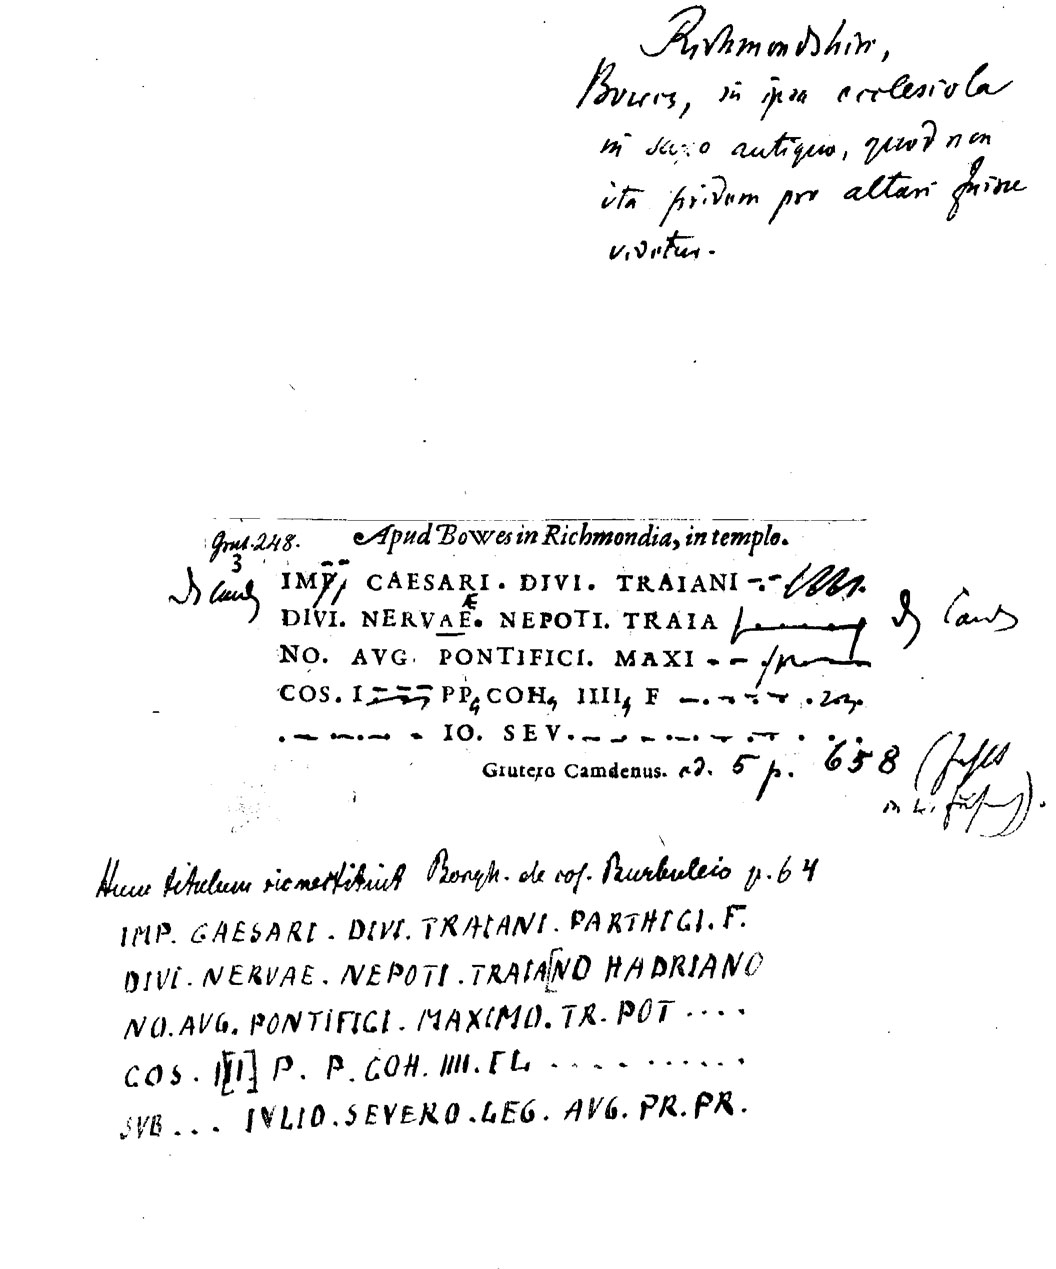 Richmondshire,
Bowes, in ipsa ecclesiola
in saxo antiquo, quod non
ita pridem pro altari fuisse
videtur.
Grut. 248. Apud Bowes in Richmondia, in templo.
3
IMP CAESARI. DIVI. TRAIANI
DIVI. NERVAE. NEPOTI. TRAIA
NO. AVG. PONTIFICI. MAXI
COS. I PP, COH, IIII, F
IO. SEV.
Grutero Camdenus. ed. 5 p. 658
Hunc titulum sic restituit Borgh. de cos. Burbuleio p. 64
IMP. CAESARI. DIVI. TRAIANI. PARTHICI. F.
DIVI. NERVAE. NEPOTI. TRAIA[NO HADRIANO
NO. AVG. PONTIFICI. MAXIMO. TR. POT ....
COS. I[II] P. P. COH. IIII. FL ..........
SVB ... IVLIO. SEVERO. LEG. AVG. PR. PR.